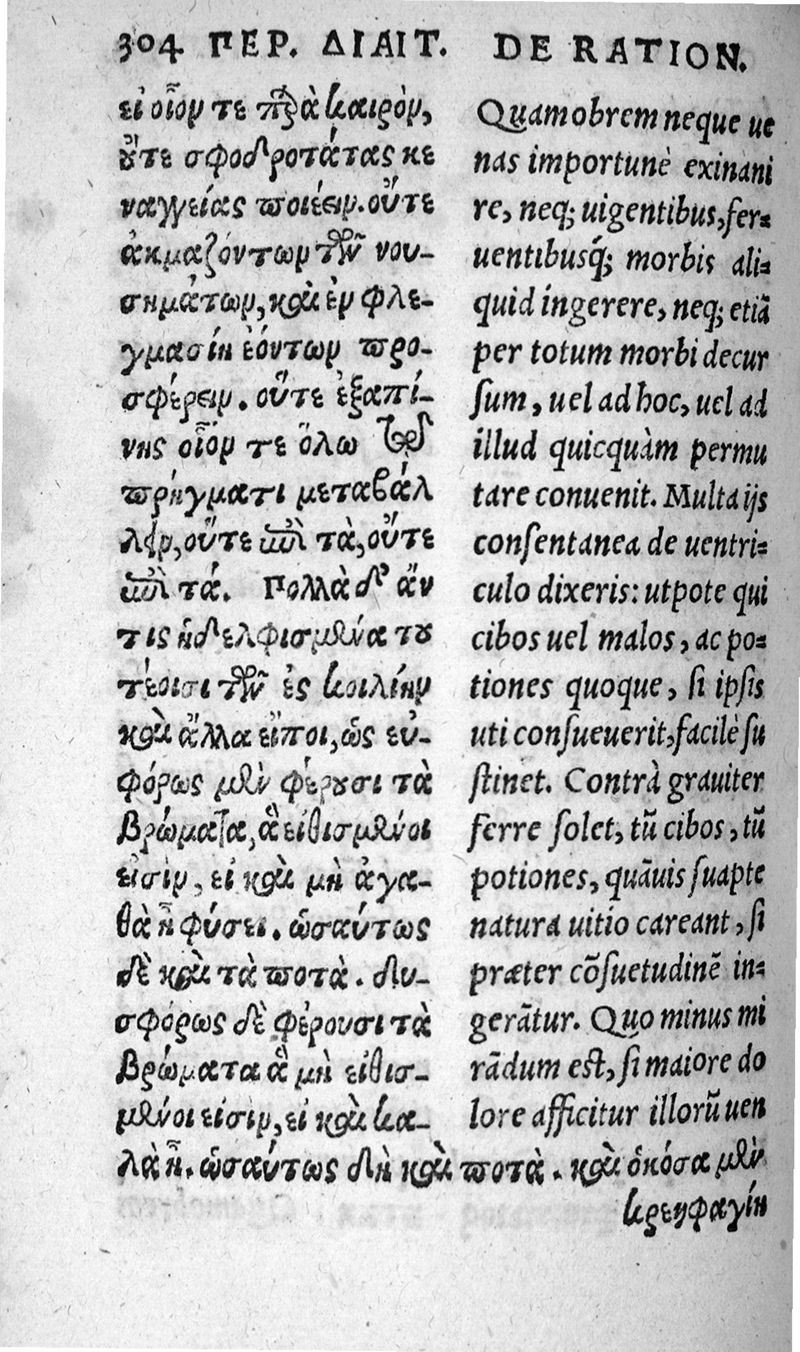 304 ΠΕΡ. ΔΙΑΙΤ. DE RATION.
εἰ οἷον τε παρὰ καιρὸν,
οὔτε σφοδροτάτας κε
ναγγείας ποιέειν. οὔτε
ἀκμαζόντων τῶν νου-
σημάτων, καὶ ἐν φλε-
γμασίῃ ἐόντων προ-
σφέρειν. οὔτε ἐξαπί-
νης οἷον τε ὅλω τῷ
πρήγματι μεταβάλ
λειν, οὔτε ἐπὶ τὰ, οὔτε
ἐπὶ τά. Πολλὰ δ' ἄν
τις ἠδελφισμένα του
τέοισι τῶν ἐς κοιλίην
καὶ ἄλλα εἴποι, ὡς εὐ-
φόρως μὲν φέρουσι τὰ
βρώματα, ἃ εἰθισμένοι
εἰσὶν, εἰ καὶ μὴ ἀγα-
θὰ ᾖ φύσει. ὡσαύτως
δὲ καὶ τὰ ποτὰ. δυ-
σφόρως δὲ φέρουσι τὰ
βρώματα ἃ μὴ εἰθισ-
μένοι εἰσὶν, εἰ καὶ κα-
λὰ ᾖ. ὡσαύτως δὴ καὶ ποτὰ. καὶ ὁκόσα μὲν
κρεηφαγίη
Quamobrem neque ue
nas importunè exinani
re, neq; uigentibus, fer-
uentibusq́; morbis ali-
quid ingerere, neq; etiã
per totum morbi decur
sum, uel ad hoc, uel ad
illud quicquàm permu
tare conuenit. Multa ijs
consentanea de uentri-
culo dixeris: utpote qui
cibos uel malos, ac po-
tiones quoque, si ipsis
uti consueuerit, facilè su
stinet. Contrà grauiter
ferre solet, tũ cibos, tũ
potiones, quãuis suapte
natura uitio careant, si
præter cõsuetudinẽ in-
gerãtur. Quo minus mi
rãdum est, si maiore do
lore afficitur illorũ uen